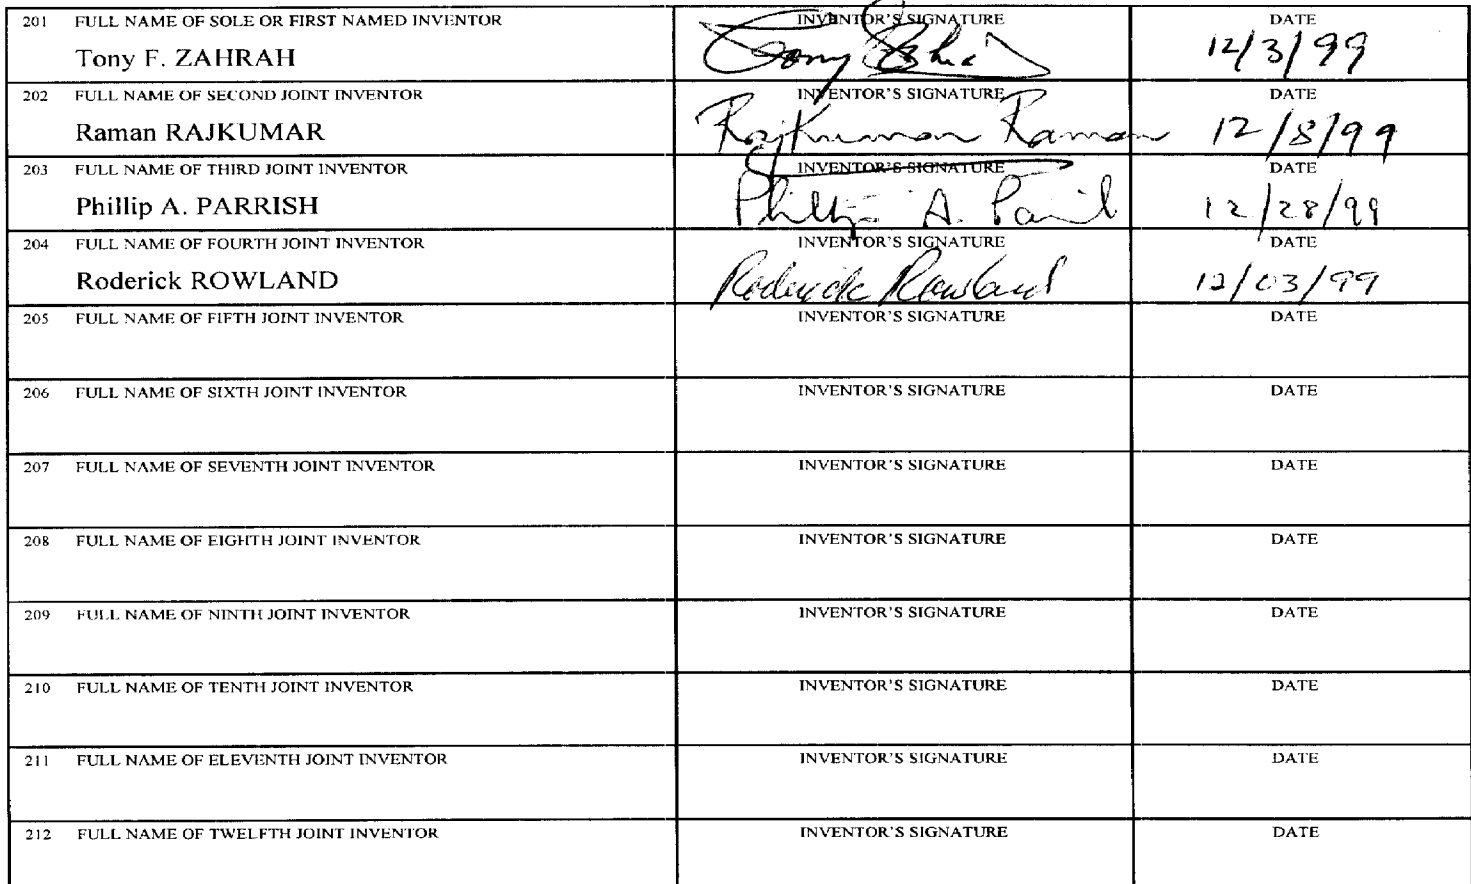 201 FULL NAME OF SOLE OR FIRST NAMED INVENTOR INVENTOR'S SIGNATURE DATE
Tony F. ZAHRAH Tony 12/3/99
202 FULL NAME OF SECOND JOINT INVENTOR INVENTOR'S SIGNATURE DATE
Raman RAJKUMAR RajKumar Raman 12/8/99
203 FULL NAME OF THIRD JOINT INVENTOR INVENTOR'S SIGNATURE DATE
Phillip A. PARRISH Phillip A. 12/28/99
204 FULL NAME OF FOURTH JOINT INVENTOR INVENTOR'S SIGNATURE DATE
Roderick ROWLAND Roderick Rowland 12/03/99
205 FULL NAME OF FIFTH JOINT INVENTOR INVENTOR'S SIGNATURE DATE
206 FULL NAME OF SIXTH JOINT INVENTOR INVENTOR'S SIGNATURE DATE
207 FULL NAME OF SEVENTH JOINT INVENTOR INVENTOR'S SIGNATURE DATE
208 FULL NAME OF EIGHTH JOINT INVENTOR INVENTOR'S SIGNATURE DATE
209 FULL NAME OF NINTH JOINT INVENTOR INVENTOR'S SIGNATURE DATE
210 FULL NAME OF TENTH JOINT INVENTOR INVENTOR'S SIGNATURE DATE
211 FULL NAME OF ELEVENTH JOINT INVENTOR INVENTOR'S SIGNATURE DATE
212 FULL NAME OF TWELFTH JOINT INVENTOR INVENTOR'S SIGNATURE DATE